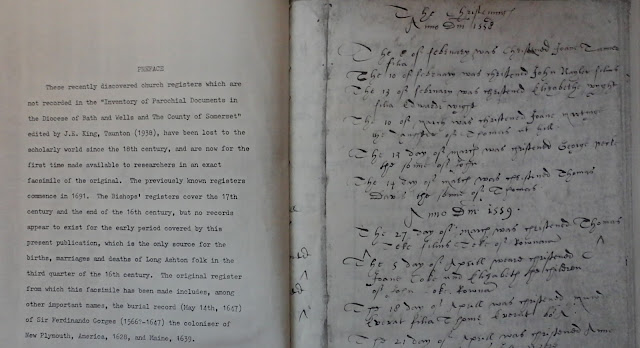 PREFACE
These recently discovered church registers which are
not recorded in the "Inventory of Parochial Documents in
the Diocese of Bath and Wells and The County of Somerset"
edited by J.E. King, Taunton (1938), have been lost to the
scholarly world since the 18th century, and are now for the
first time made available to researchers in an exact
facsimile of the original. The previously known registers
commence in 1691. The Bishops' registers cover the 17th
century and the end of the 16th century, but no records
appear to exist for the early period covered by this
present publication, which is the only source for the
births, marriages and deaths of Long Ashton folk in the
third quarter of the 16th century. The original register
from which this facsimile has been made includes, among
other important names, the burial record (May 14th, 1647)
of Sir Ferdinando Gorges (1566?-1647) the coloniser of
New Plymouth, America, 1628, and Maine, 1639.
The Christenings
Anno Dm 1558
The 8 of february was Christened Joane
filia
The 10 of february was christened John
The 13 of february was christened Elizabethe
filia Edward
The 10 of march was christened Joane
the daughter of Thomas
The 13 day of march was christened George
the sonne of John
The 14 day of march was christened Thomas
the sonne of Thomas
Anno Dm 1559
The 27 day of march was christened Thomas
The 5 day of Aprill were christened
Joane and Elizabeth children
of John
The 18 day of Aprill was christened
filia
The 21 day of Aprill was christened